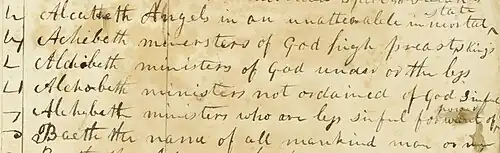 Alcabeth Angels in an unalterable in mortal ^ state
Achebeth minersters of God high preasts Kings
Alchebeth ministers of God under or the les
Alchobeth ministers not ordained of God Sinful
Alchybeth ministers who are les sinful for want of power
Baeth the name of all mankind man or